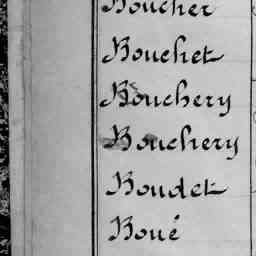 Boucher
Bouchet
Bouchery
Bouchery
Boudet
Boué